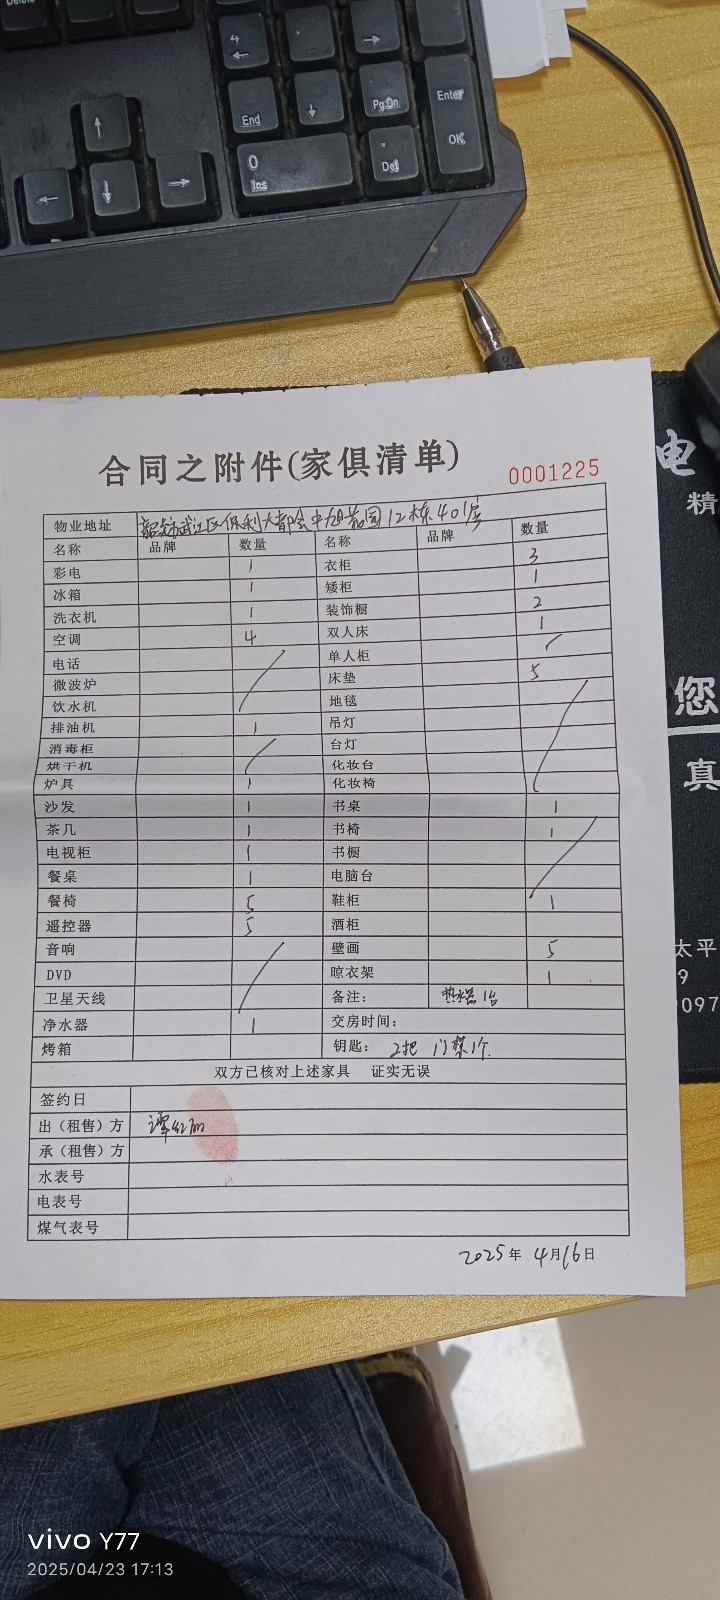 Delete
4 ← . →
End ↓ Pg Dn Enter
↑ 0 Ins Del OK
← ↓ →
合同之附件(家俱清单)
0001225
物业地址 韶关市武江区保利大都会中旭荷园12栋401房
名称 品牌 数量 名称 品牌 数量
彩电 1 衣柜 3
冰箱 1 矮柜 1
洗衣机 1 装饰橱 2
空调 4 双人床 1
电话 单人柜
微波炉 床垫 5
饮水机 地毯
排油机 1 吊灯
消毒柜 台灯
烘干机 化妆台
炉具 1 化妆椅
沙发 1 书桌 1
茶几 1 书椅 1
电视柜 1 书橱
餐桌 1 电脑台
餐椅 5 鞋柜 1
遥控器 5 酒柜
音响 壁画 5
DVD 晾衣架 1
卫星天线 备注： 热水器1台
净水器 1 交房时间：
烤箱 钥匙： 2把 门禁1个
双方已核对上述家具 证实无误
签约日
出（租售）方
承（租售）方
水表号
电表号
煤气表号
2025年4月16日
电
精
您
真
太平
9
097
vivo Y77
2025/04/23 17:13